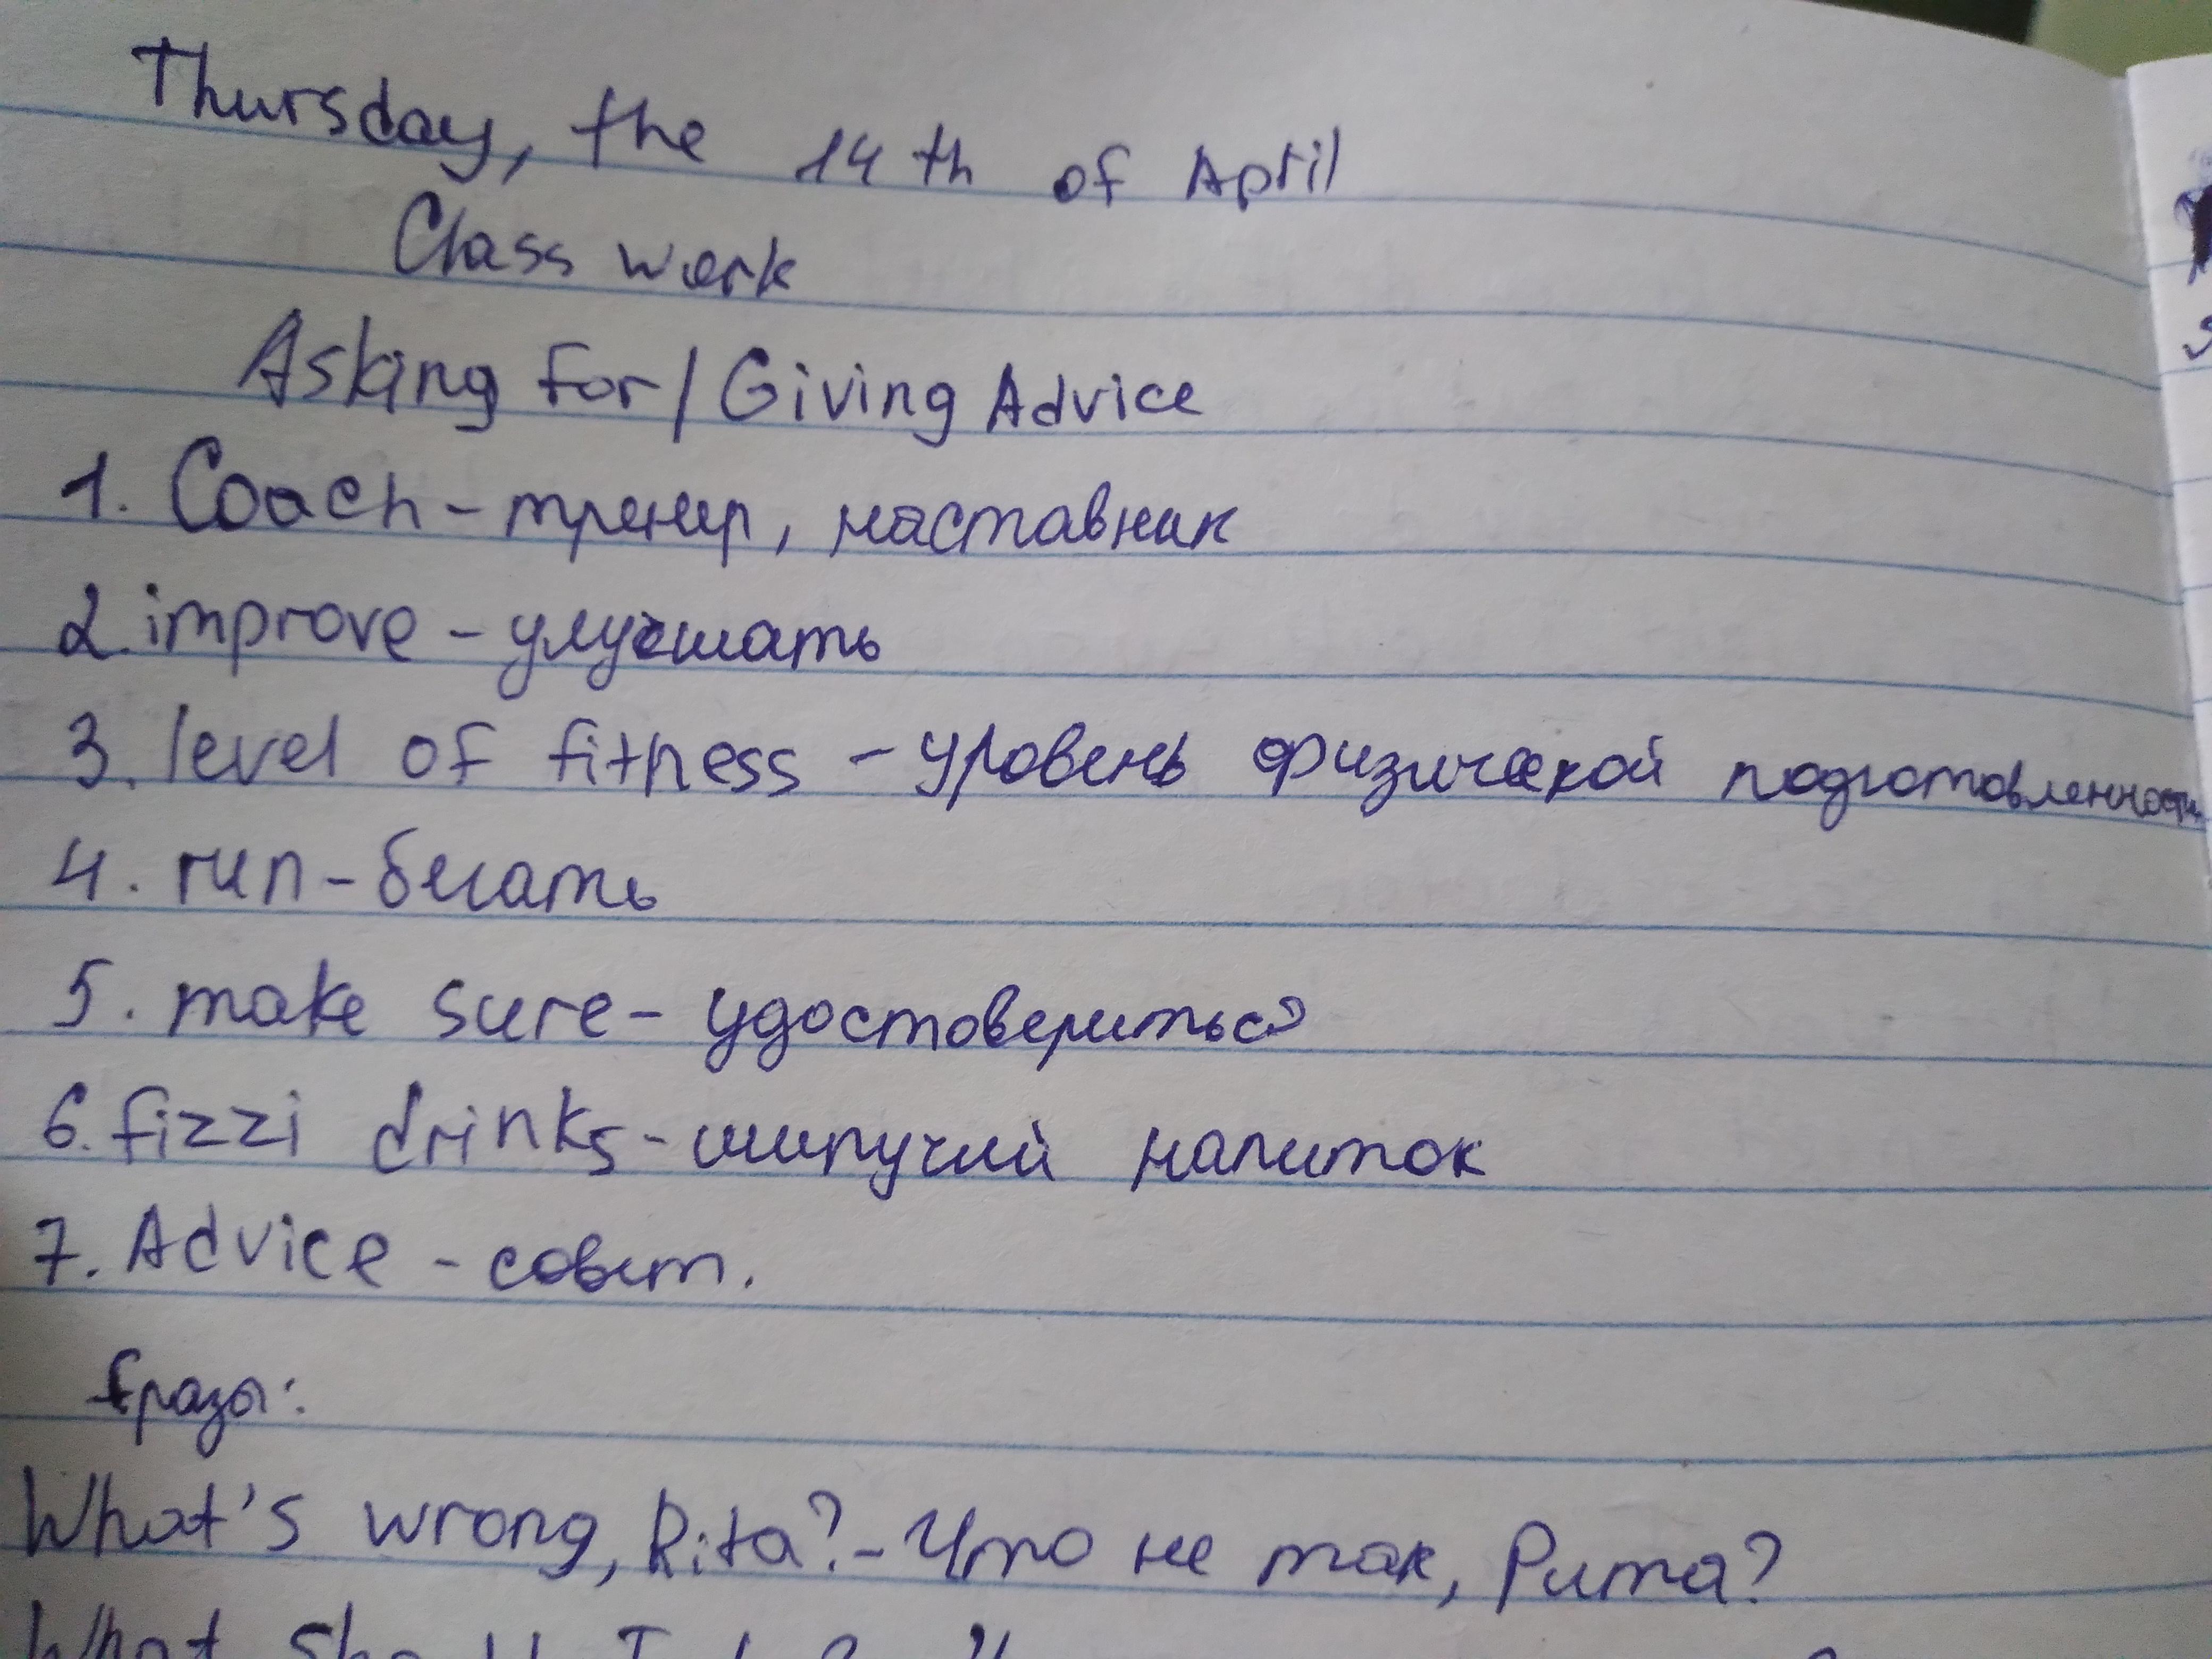 Thursday, the 14th of April
Class work
Asking for/Giving Advice
1. Coach - тренер, наставник
2. improve - улучшать
3. level of fitness - уровень физической подготовленности
4. run - бегать
5. make sure - удостовериться
6. fizzi drinks - шипучий напиток
7. Advice - совет.
фразы:
What's wrong, Rita? - Что не так, Рита?
What